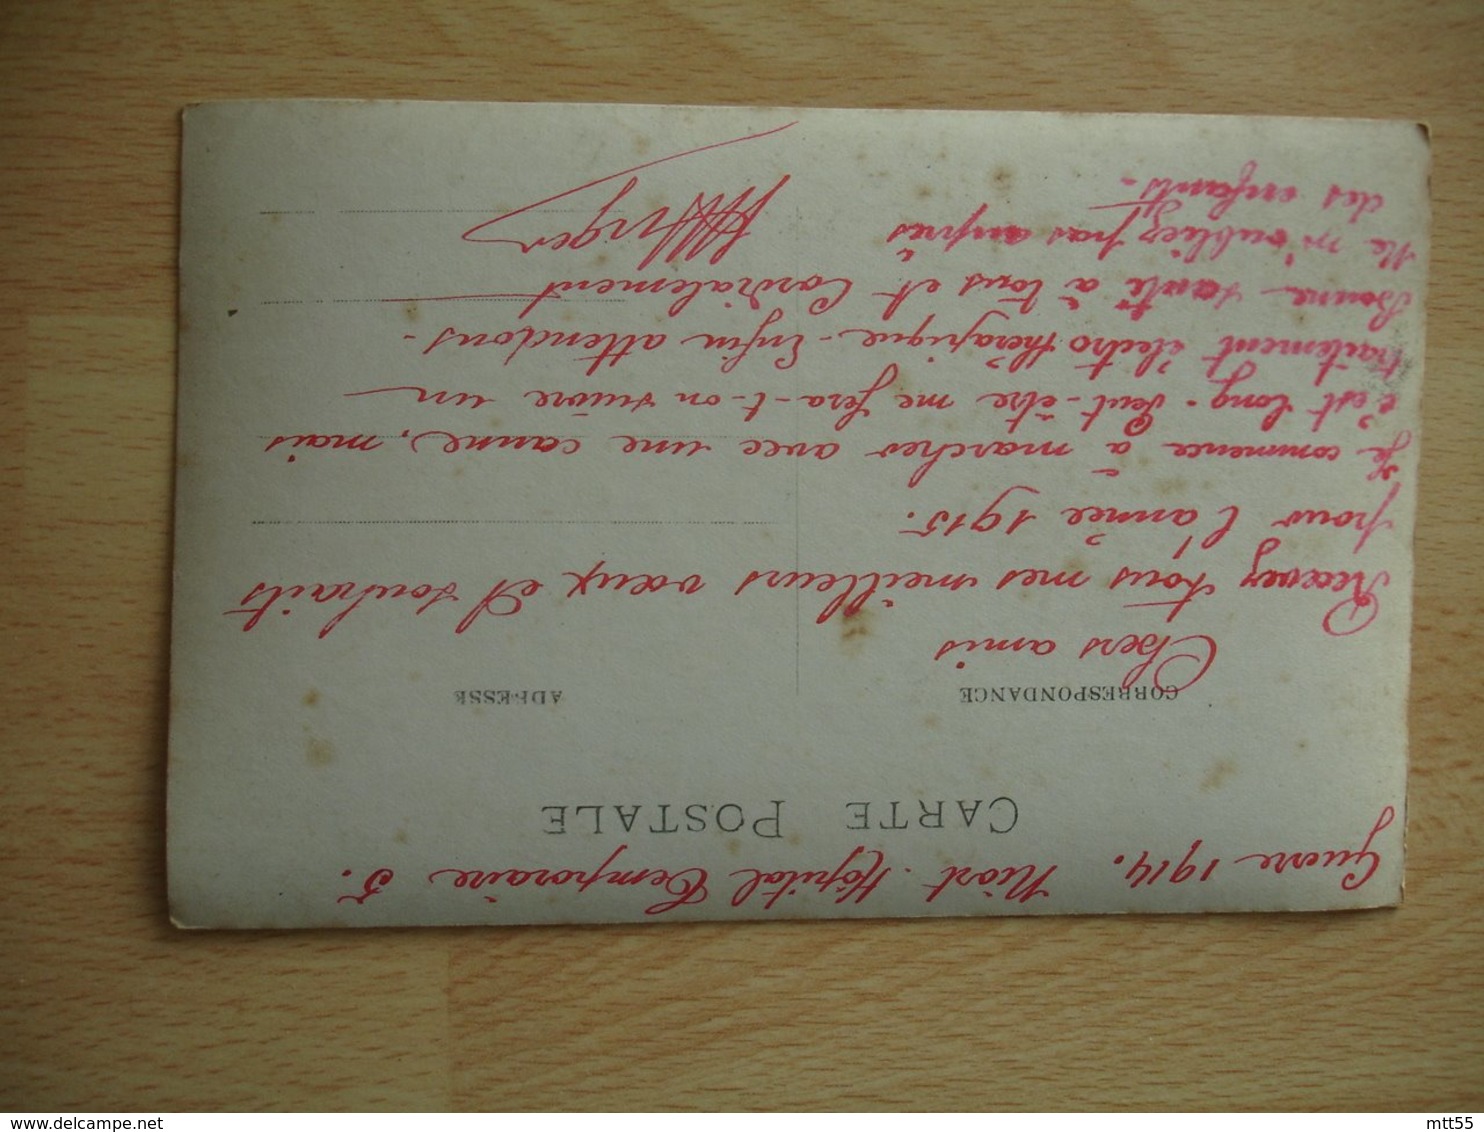 Guerre 1914. Niort. Hôpital Temporaire 5.
CARTE POSTALE
CORRESPONDANCE
ADRESSE
Chers amis
Recevez tous mes meilleurs vœux et souhaits
pour l'année 1915.
Je commence à marcher avec une canne, mais
c'est long. Peut-être me fera-t-on suivre un
traitement électro thérapique - Enfin attendons -
Bonne santé à tous et Cordialement
Ne m'oubliez pas auprès
des enfants -
mtt55